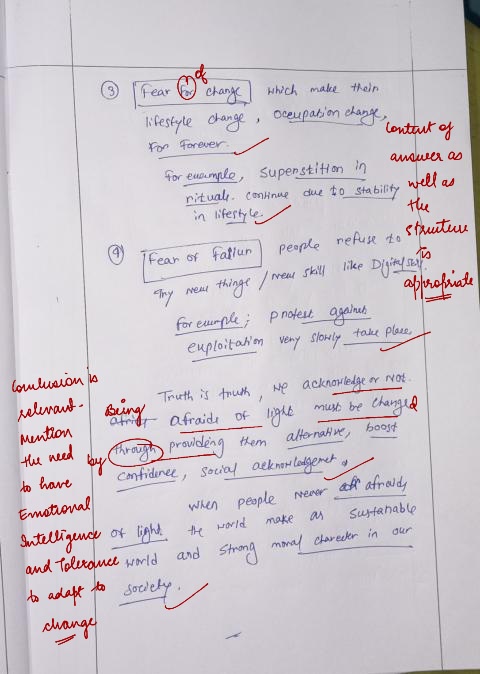 of
③ Fear for change which make their
lifestyle change, occupation change,
For Forever.
for example, Superstition in
rituals. continue due to stability
in lifestyle.
Content of
answer as
well as
the
structure
is
appropriate
④ Fear of Failur people refuse to
Try new things / new skill like Digital skill.
for example; protest against
exploitation very slowly take place
Truth is truth, we acknowledge or not.
Being
afraide of light must be changed
by through provideing them alternative, boost
confidence, social acknowledgement.
When people never afraid,
of light the world make as sustainable
world and strong moral charecter in our
society.
Conclusion is
relevant.
Mention
the need
to have
Emotional
Intelligence
and Tolerance
to adapt to
change